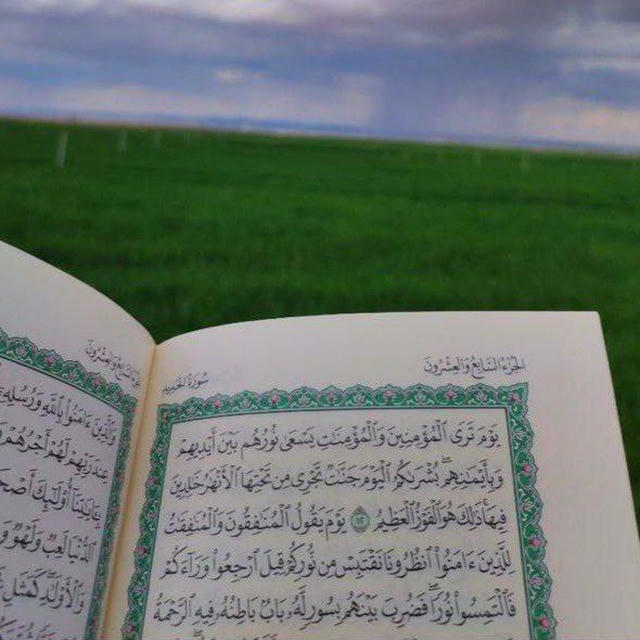 الجزء السابع والعشرون
سورة الحديد
يَوْمَ تَرَى ٱلْمُؤْمِنِينَ وَٱلْمُؤْمِنَٰتِ يَسْعَىٰ نُورُهُم بَيْنَ أَيْدِيهِمْ
وَبِأَيْمَٰنِهِم بُشْرَىٰكُمُ ٱلْيَوْمَ جَنَّٰتٌ تَجْرِى مِن تَحْتِهَا ٱلْأَنْهَٰرُ خَٰلِدِينَ
فِيهَا ذَٰلِكَ هُوَ ٱلْفَوْزُ ٱلْعَظِيمُ ١٢ يَوْمَ يَقُولُ ٱلْمُنَٰفِقُونَ وَٱلْمُنَٰفِقَٰتُ
لِلَّذِينَ ءَامَنُوا۟ ٱنظُرُونَا نَقْتَبِسْ مِن نُّورِكُمْ قِيلَ ٱرْجِعُوا۟ وَرَآءَكُمْ
فَٱلْتَمِسُوا۟ نُورًا فَضُرِبَ بَيْنَهُم بِسُورٍ لَّهُۥ بَابٌۢ بَاطِنُهُۥ فِيهِ ٱلرَّحْمَةُ
السابع والعشرون
وَٱلَّذِينَ ءَامَنُوا۟ بِٱللَّهِ وَرُسُلِهِۦٓ
عِندَ رَبِّهِمْ لَهُمْ أَجْرُهُمْ
بِـَٔايَٰتِنَآ أُو۟لَٰٓئِكَ أَصْحَٰ
ٱلدُّنْيَا لَعِبٌ وَلَهْوٌ
وَٱلْأَوْلَٰدِ كَمَثَلِ